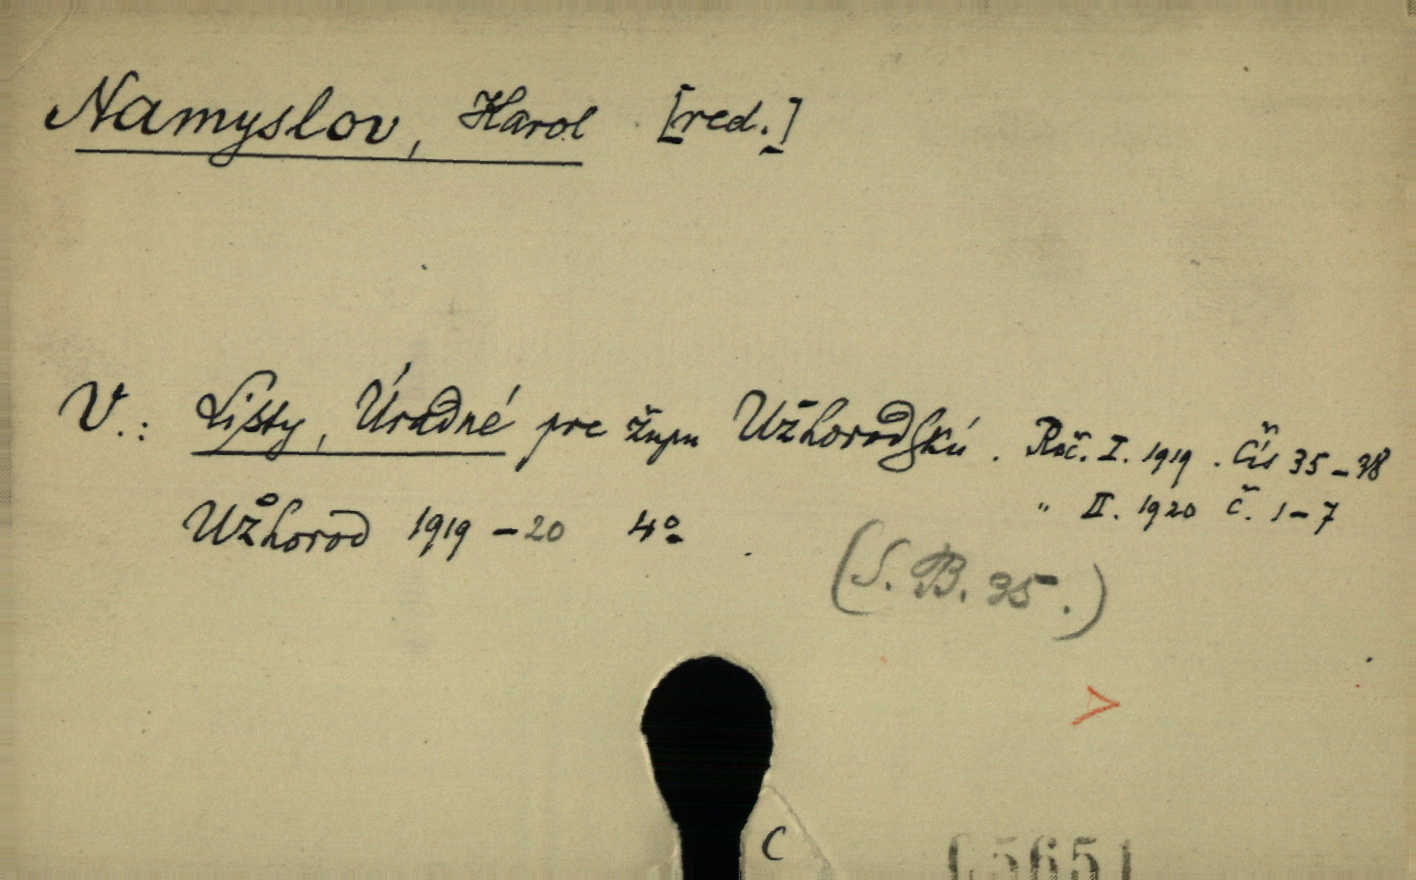 Namyslov, Karol [red.]
V.: Listy, Úradné pre župu Užhorodskú. Roč. I. 1919. Čís 35-38
" II. 1920 č. 1-7
Užhorod 1919-20 4°
(S. B. 35.)
C